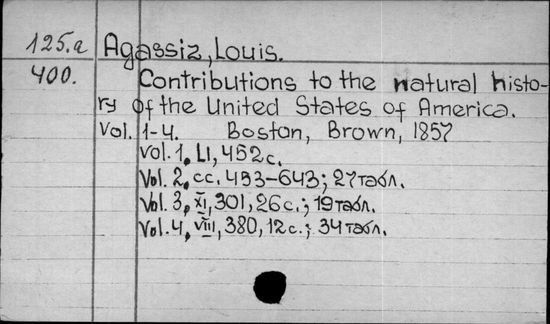 125.a Agassiz, Louis.
400. Contributions to the natural histo-
ry of the United States of America.
Vol. 1-4. Boston, Brown, 1857
Vol. 1, LI, 452 c.
Vol. 2, cc. 453-643; 27 табл.
Vol. 3, XI, 301, 26 c.; 19 табл.
Vol. 4, VIII, 380, 12 c.; 34 табл.